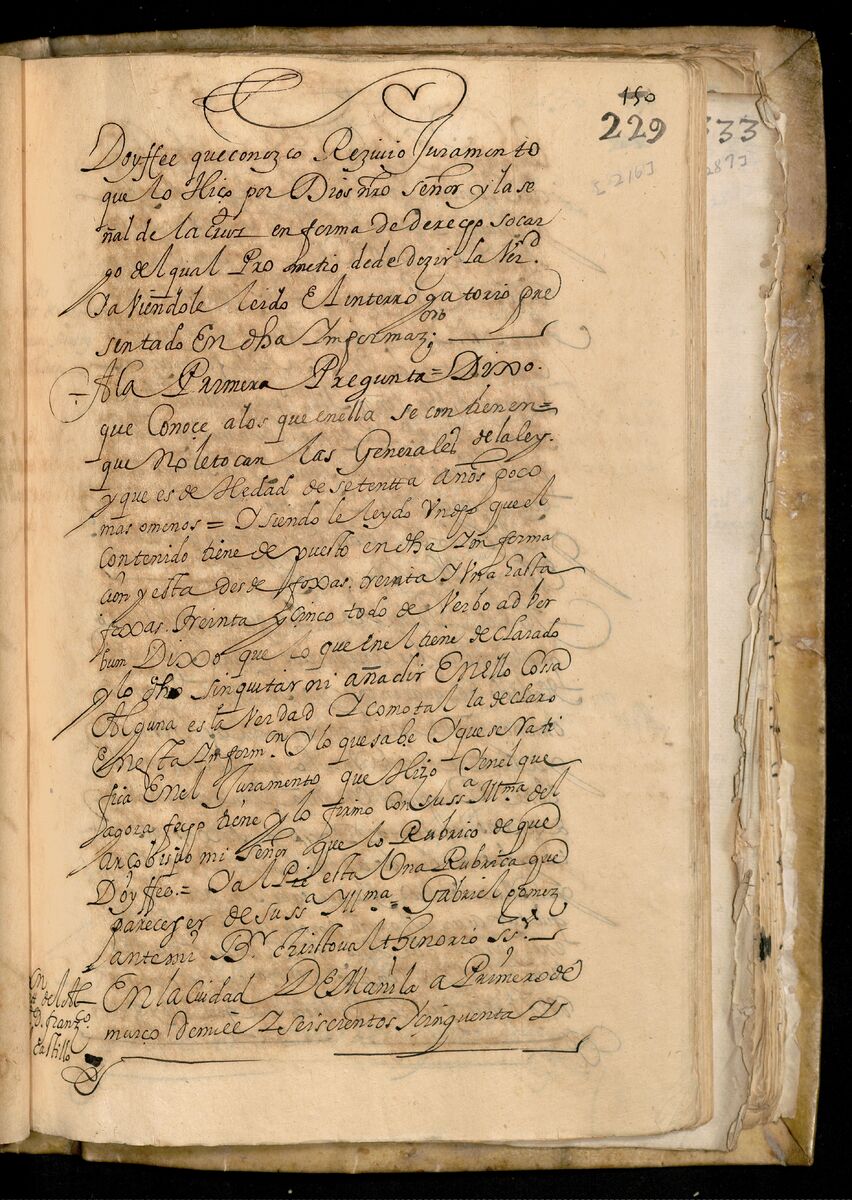 150
229
333
[216]
287]
Doyffee que conozco Rezivio Juramento
que lo Hiço por Dios nro señor y la se
ñal de la cruz en forma de derecho so car
go del qual Prometio de dezir la Verd
Y aViendole leido El interrogatorio pre
sentado En dha Informazon
A la Primera Pregunta = Dixo.
que Conoce a los que en ella se contienen =
que No le tocan las Generales de la ley.
y que es de Hedad de setentta años poco
mas o menos = Y siendole leydo Un dho que el
Contenido tiene depuesto en dha Informa
ción y esta desde foxas. treinta Y Una hasta
foxas. treinta y Cinco todo de Verbo ad Ver
bum Dixo que lo que en el tiene declarado
y lo dho sin quitar ni añadir En ello Cossa
Alguna es la Verdad Y como tal la declaro
En esta Informon Y lo que sabe Y que se Rati
fica En el Juramento que Hizo Y en el que
agora fecho tiene y lo firmo Con su ssa Yllma del
arcobispo mi señor que lo Rubrico de que
Doyffee. = Y al Pie esta Una Rubrica que
parece ser de su ssa Yllma = Gabriel gomez
ante mi Br christoval thenorio ssrio
En la Ciudad DE Manila a Primero de
março de mill Y seiscientos Y cinquenta Y
del Al
D. Franzco.
Castillo